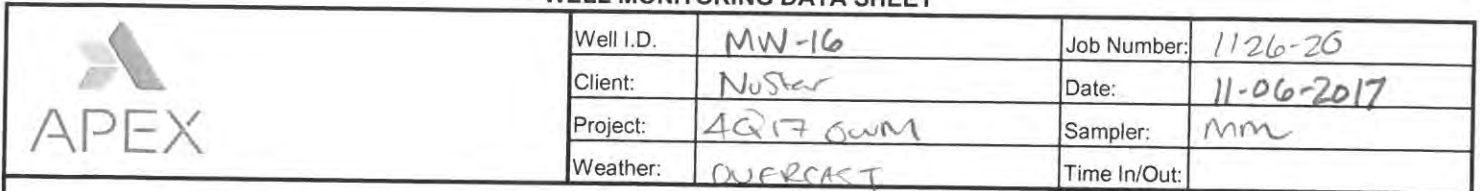 WELL MONITORING DATA SHEET
APEX
Well I.D. MW-16 Job Number: 1126-20
Client: NuStar Date: 11-06-2017
Project: 4Q17 GWM Sampler: MM
Weather: OVERCAST Time In/Out: